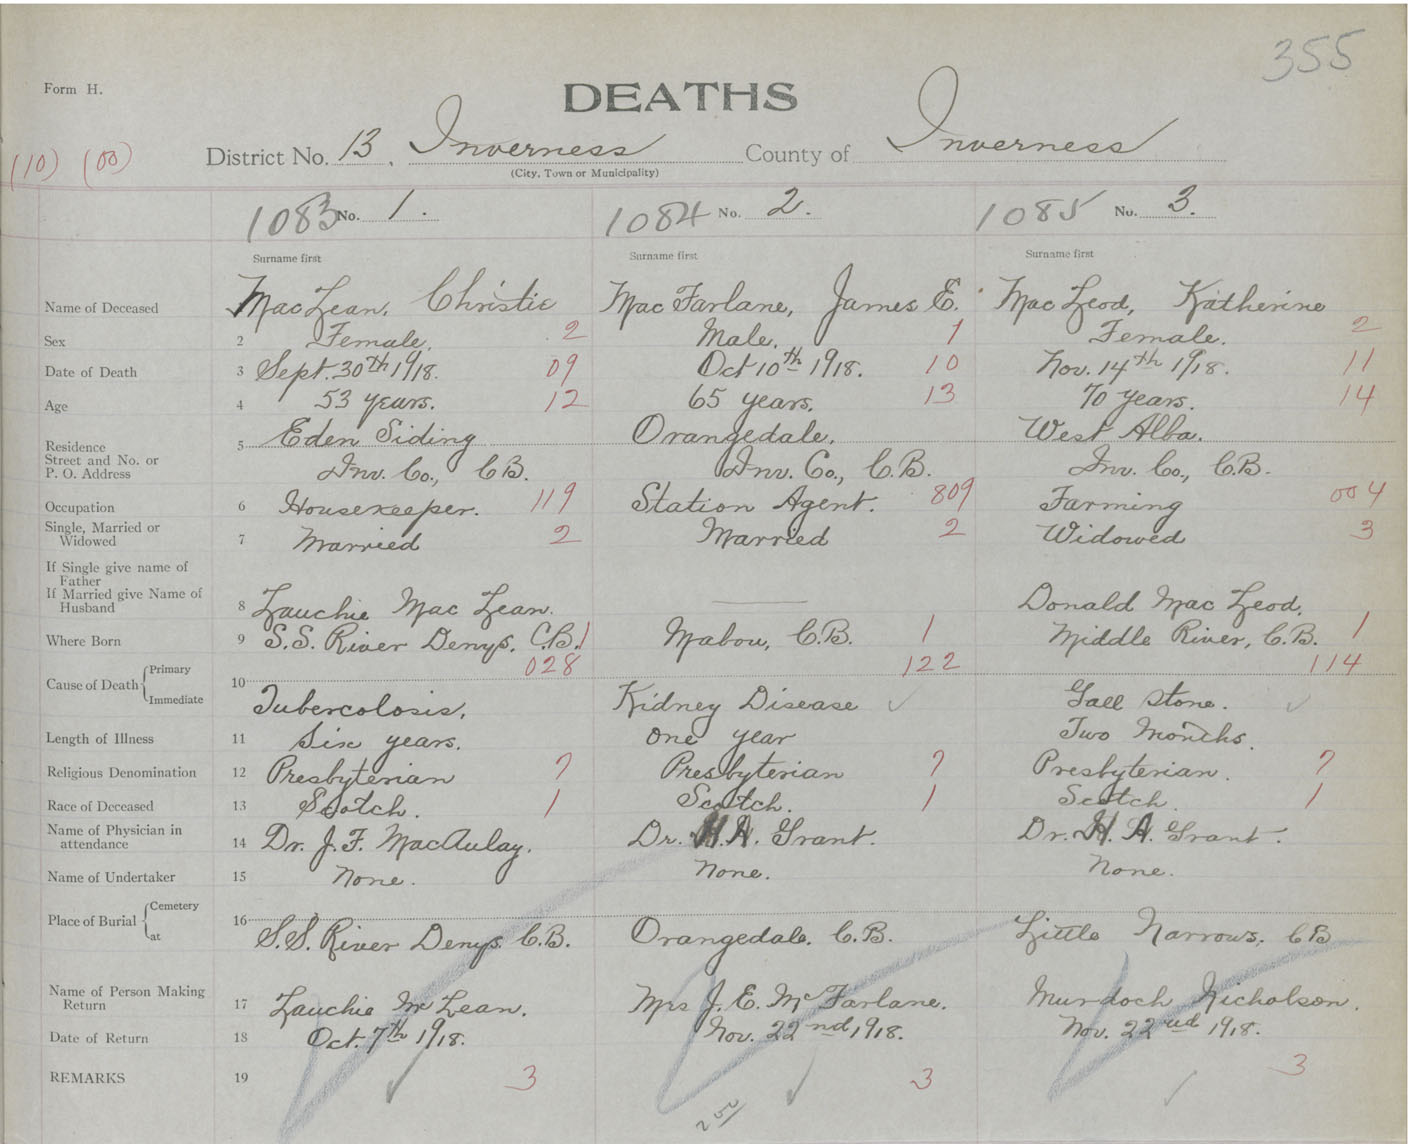 355
Form H.
DEATHS
(10) (00) District No. 13. Inverness County of Inverness
(City, Town or Municipality)
1083 No. 1. 1084 No. 2. 1085 No. 3.
Surname first Surname first Surname first
Name of Deceased MacLean, Christie MacFarlane, James E. MacLeod, Katherine
Sex 2 Female. 2 Male. 1 Female. 2
Date of Death 3 Sept. 30th 1918. 09 Oct 10th 1918. 10 Nov. 14th 1918. 11
Age 4 53 years. 12 65 years. 13 70 years. 14
Residence 5 Eden Siding Orangedale. West Alba.
Street and No. or
P. O. Address Inv. Co., C.B. Inv. Co., C.B. Inv. Co., C.B.
Occupation 6 Housekeeper. 119 Station Agent. 809 Farming 004
Single, Married or
Widowed 7 Married 2 Married 2 Widowed 3
If Single give name of
Father
If Married give Name of
Husband 8 Lauchie Mac Lean. —— Donald Mac Leod.
Where Born 9 S.S. River Denys. C.B. 1 Mabou, C.B. 1 Middle River, C.B. 1
028 122 114
Cause of Death { Primary
Immediate 10 Tubercolosis. Kidney Disease ✓ Gall stone. ✓
Length of Illness 11 Six years. one year Two Months.
Religious Denomination 12 Presbyterian 7 Presbyterian 7 Presbyterian. 7
Race of Deceased 13 Scotch. 1 Scotch. 1 Scotch. 1
Name of Physician in
attendance 14 Dr. J. F. MacAulay. Dr. H. A. Grant. Dr. H. A. Grant.
Name of Undertaker 15 None. None. None.
Place of Burial { Cemetery
at 16 S.S. River Denys C.B. Orangedale. C.B. Little Narrows. CB
Name of Person Making
Return 17 Lauchie McLean. Mrs J. E. McFarlane. Murdoch Nicholson.
Date of Return 18 Oct. 7th 1918. Nov. 22nd 1918. Nov. 22nd 1918.
REMARKS 19 ✓ 3 ✓ 3 ✓ 3